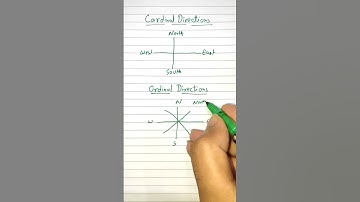 Cardinal Directions
North
West East
South
Ordinal Directions
N Nort
W
S